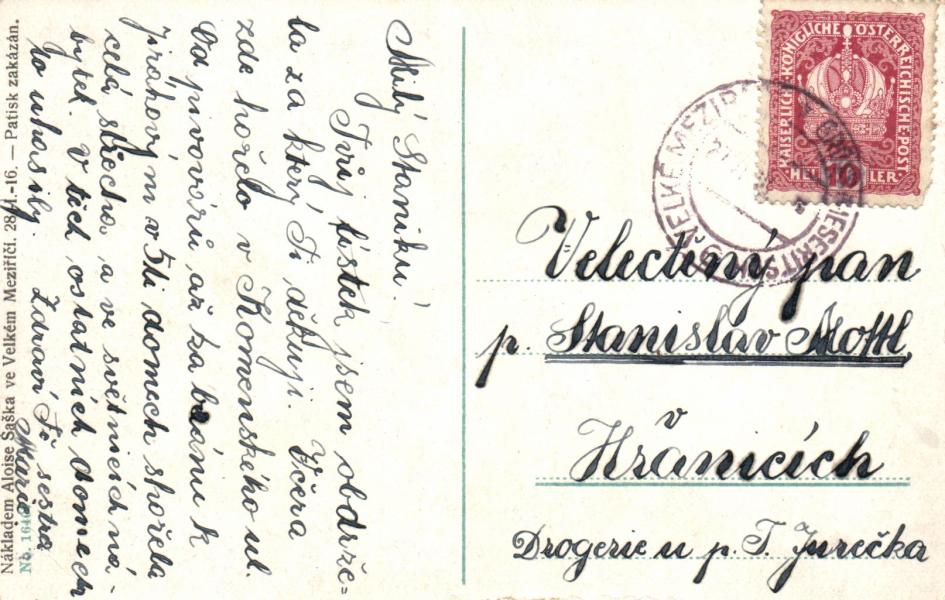 Milý Staniku!
Tvůj lístek jsem obdrže=
la za který Ti děkuji. Včera
zde hořelo v Komenského ul.
Od pivováru až ka bránu k
jiróhovým v 5ti domech shořela
celá střecha a ve světnicích ná-
bytek. V těch ostatních domech
to uhasily. Zdraví Tě sestra
Marie
Nákladem Aloise Šaška ve Velkém Meziříčí. 28.-I.-16. — Patisk zakázán.
KAISERLICHE KÖNIGLICHE ÖSTERREICHISCHE POST
10
HELLER
VELKÉ MEZIŘ
Velectěný pan
p. Stanislav Moftl
v
Hránicích
Drogerie u p. T. Jurečka